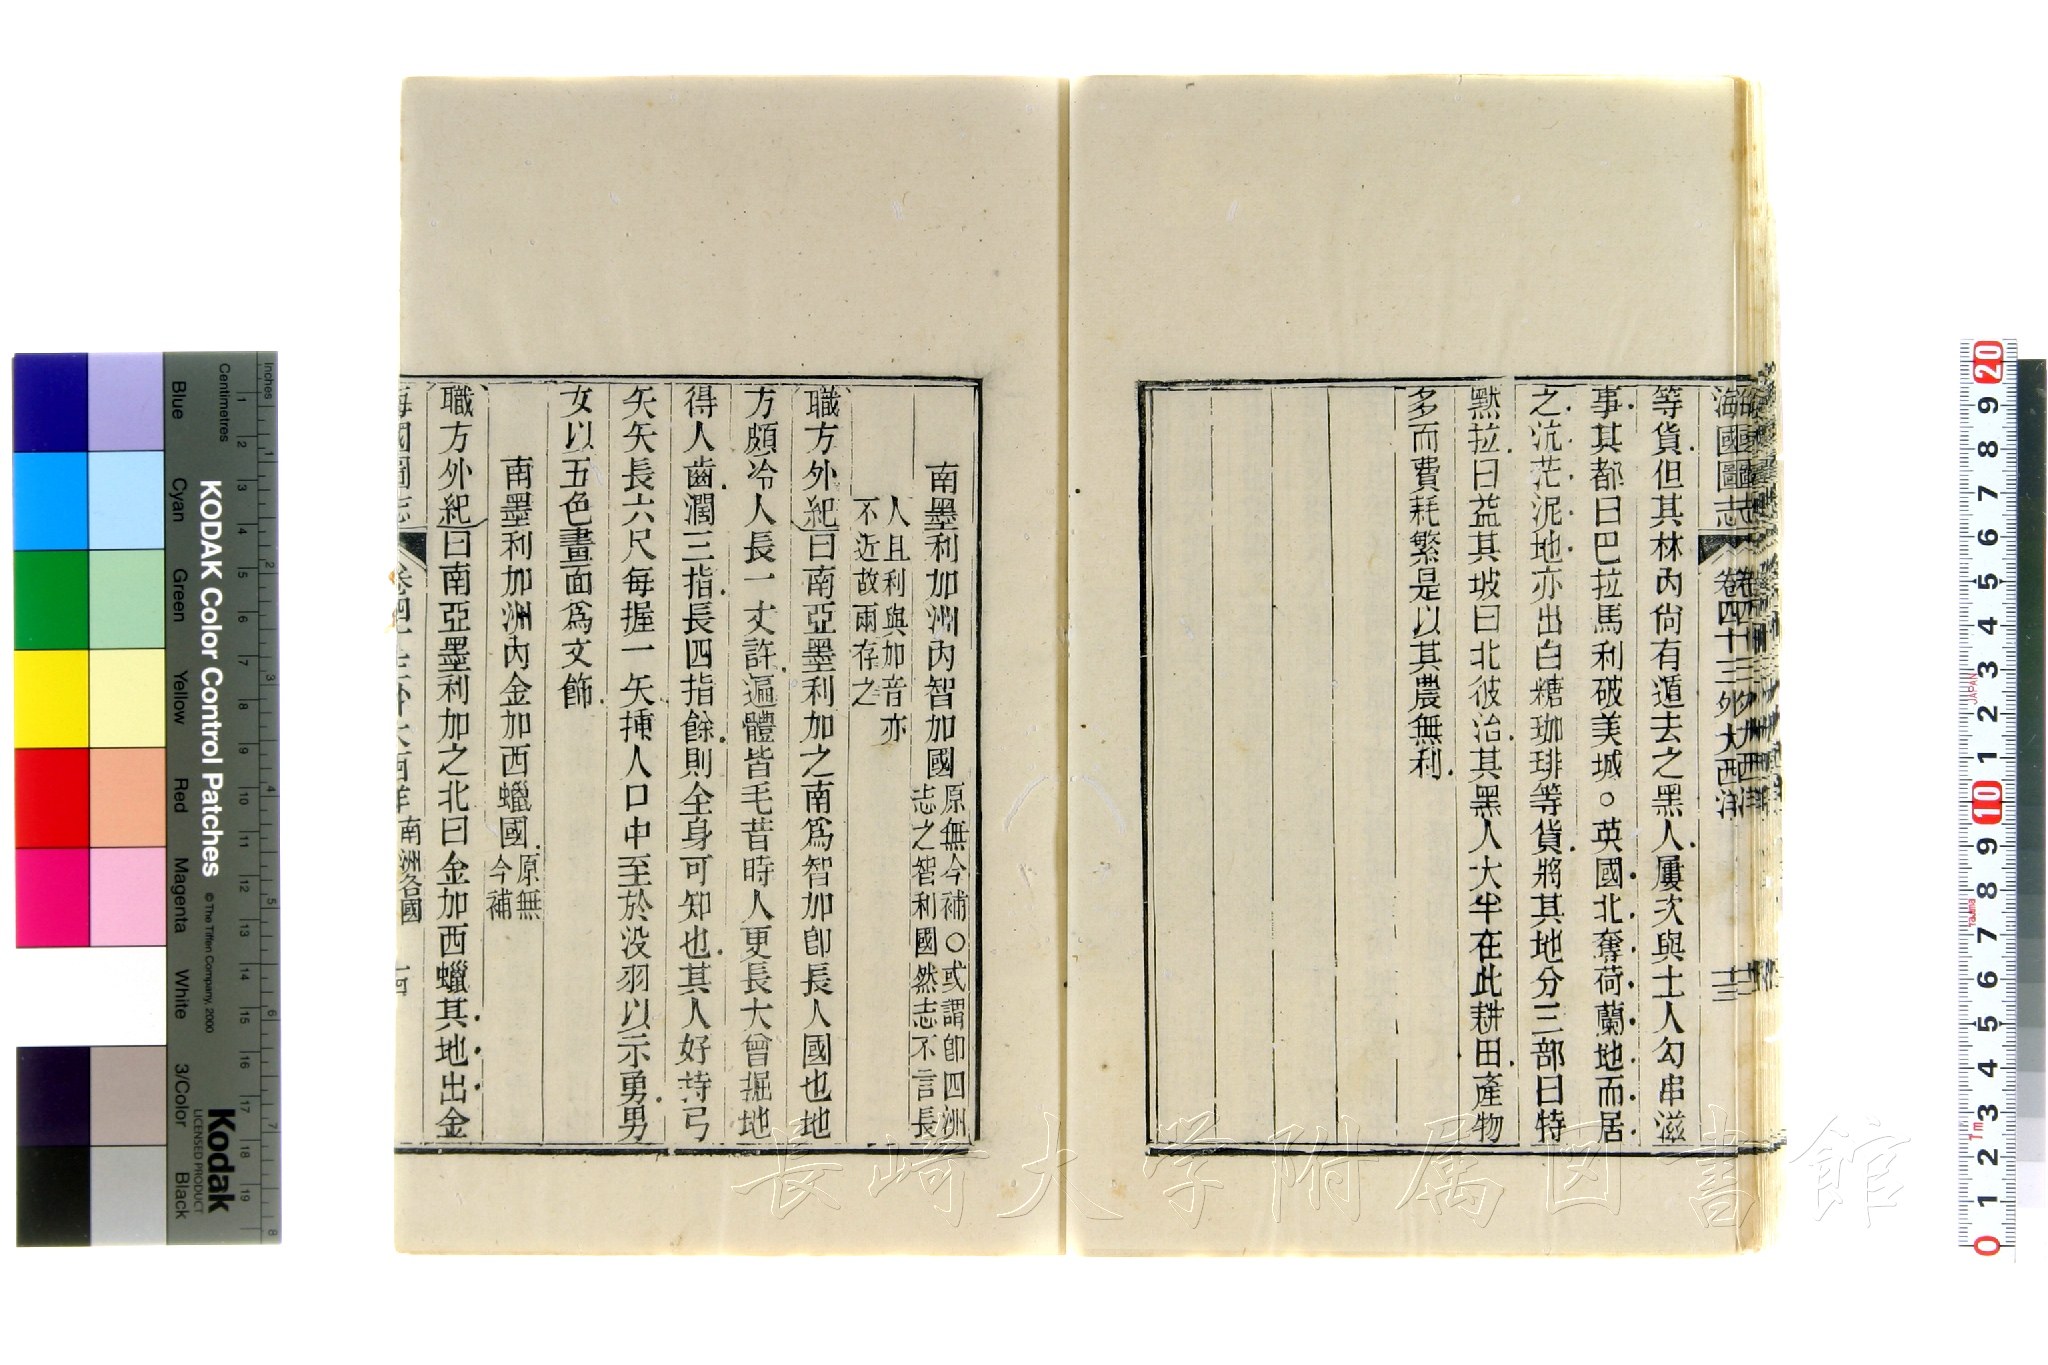 海國圖志 卷四十三 外大西洋 十三
等貨但其林內尙有遁去之黑人屢次與土人勾串滋
事其都曰巴拉馬利破美城○英國北奪荷蘭地而居
之沆茫泥地亦出白糖珈琲等貨將其地分三部曰特
黙拉曰益其坡曰北彼治其黑人大半在此耕田產物
多而費耗繁是以其農無利
南墨利加洲內智加國原無今補○或謂卽四洲
志之智利國然志不言長
人且利與加音亦
不近故兩存之
職方外紀曰南亞墨利加之南爲智加卽長人國也地
方頗冷人長一丈許遍體皆毛昔時人更長大曾掘地
得人齒濶三指長四指餘則全身可知也其人好持弓
矢矢長六尺每握一矢揷人口中至於没羽以示勇男
女以五色畫面爲文飾
南墨利加洲內金加西蠟國原無
今補
職方外紀曰南亞墨利加之北曰金加西蠟其地出金
海國圖志 卷四十三 外大西洋 南洲各國 十四
KODAK Color Control Patches
© The Tiffen Company, 2000
Kodak
LICENSED PRODUCT
Inches
Centimetres
Blue
Cyan
Green
Yellow
Red
Magenta
White
3/Color
Black
1 2 3 4 5 6 7 8
1 2 3 4 5 6 7 8 9 10 11 12 13 14 15 16 17 18 19
20 9 8 7 6 5 4 3 2 1 10 9 8 7 6 5 4 3 2 1 0
JAPAN
長崎大学附属図書館